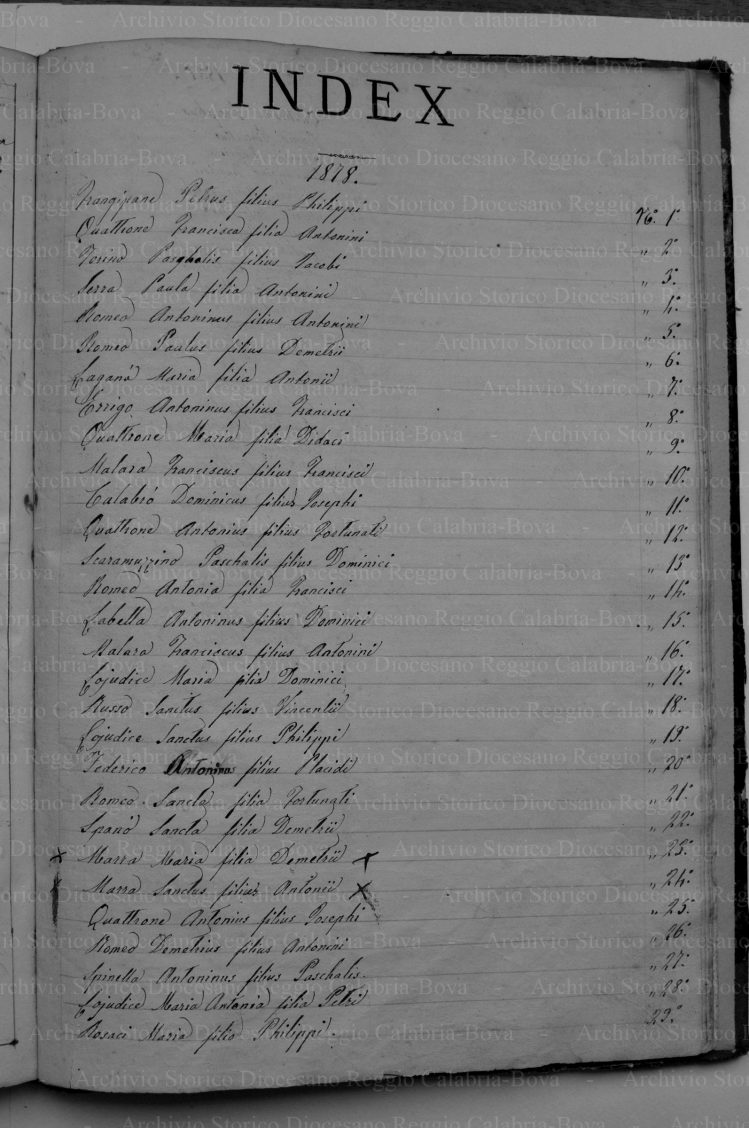 INDEX
1878.
Frangipane Petrus filius Philippi No. 1º
Quattrone Francisca filia Antonini " 2º
Torino Paschalis filius Jacobi " 3º
Serra Paula filia Antonini " 4º
Romeo Antoninus filius Antonini " 5º
Romeo Paulus filius Demetrii " 6º
Laganà Maria filia Antonii " 7º
Errigo Antoninus filius Francisci " 8º
Quattrone Maria filia Didaci " 9º
Malara Franciscus filius Francisci " 10º
Calabrò Dominicus filius Josephi " 11º
Quattrone Antonius filius Fortunati " 12º
Scaramuzzino Paschalis filius Dominici " 13º
Romeo Antonia filia Francisci " 14º
Labella Antoninus filius Dominici " 15º
Malara Franciscus filius Antonini " 16º
Lojudice Maria filia Dominici " 17º
Russo Sanctus filius Vincentii " 18º
Lojudice Sanctus filius Philippi " 19º
Federico Antoninus filius Placidi " 20º
Romeo Sancta filia Fortunati " 21º
Spanò Sancta filia Demetrii " 22º
x Marra Maria filia Demetrii x " 23º
Marra Sanctus filius Antonii x " 24º
Quattrone Antonius filius Josephi " 25º
Romeo Demetrius filius Antonini " 26º
Spinella Antoninus filius Paschalis " 27º
Lojudice Maria Antonia filia Petri " 28º
Rosaci Maria filia Philippi 29º
Archivio Storico Diocesano Reggio Calabria-Bova